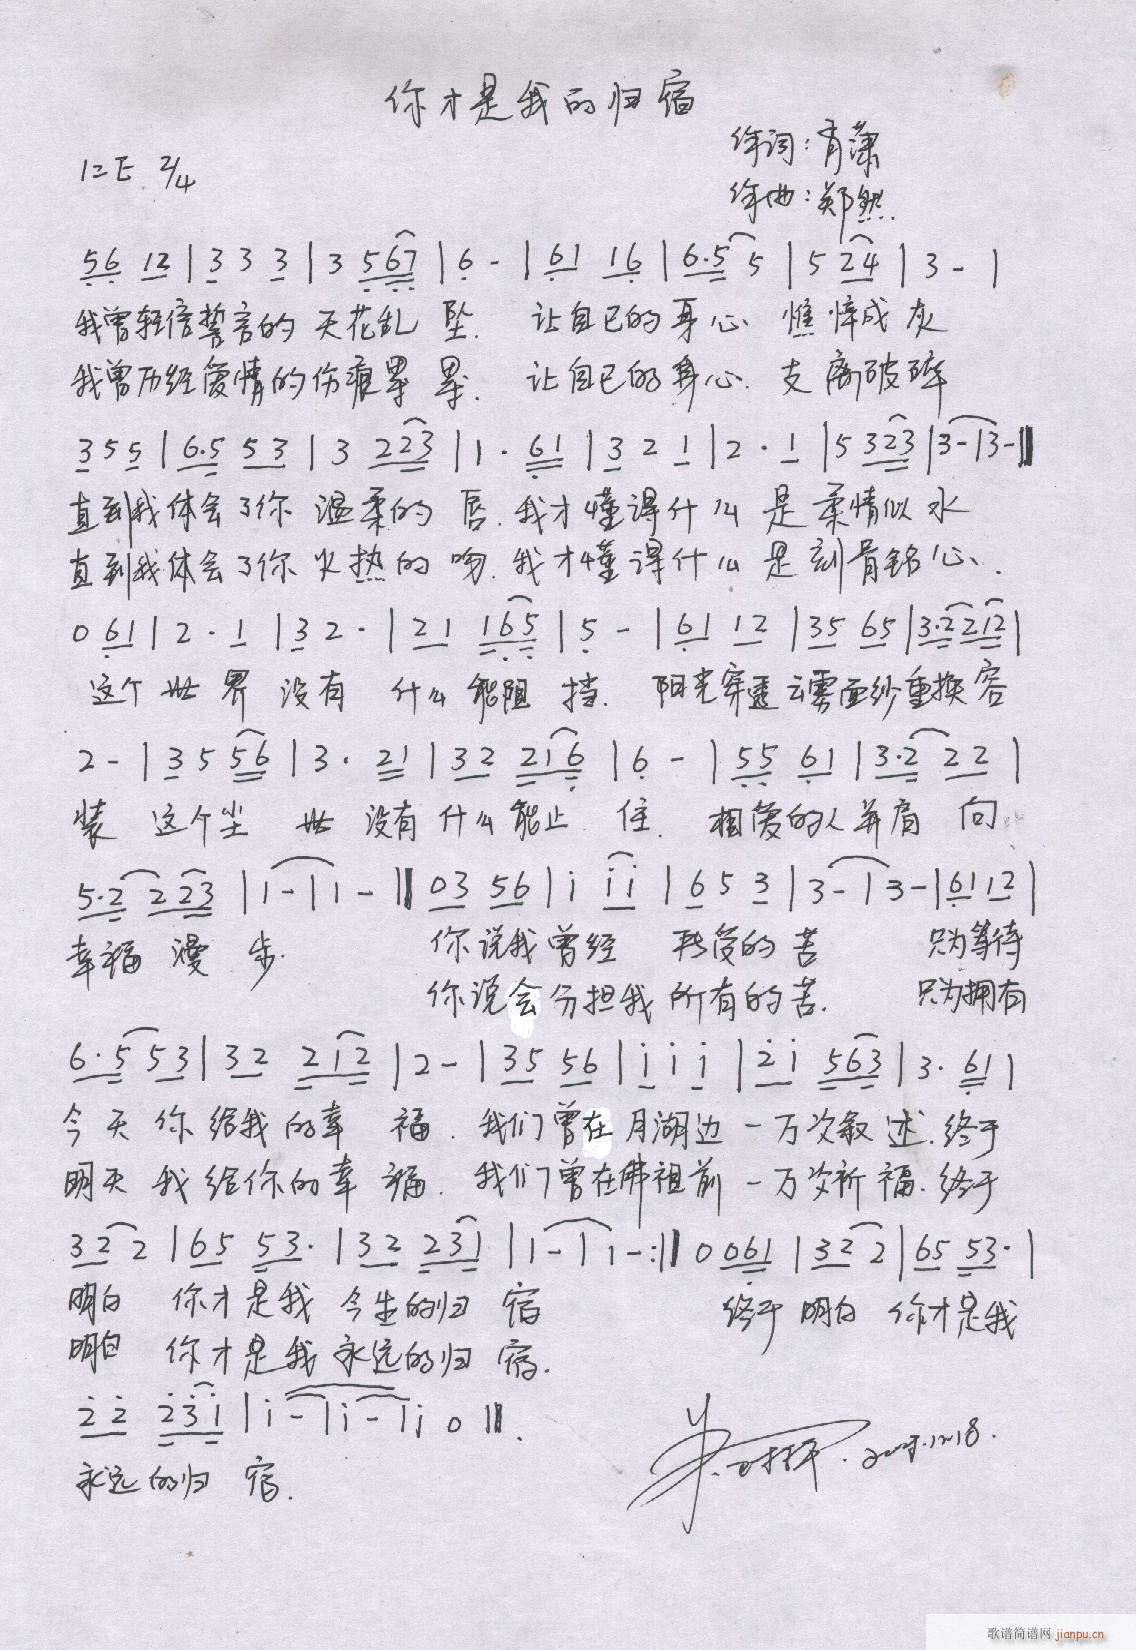 你才是我的归宿
作词:肖潇
1=E 2/4
作曲:郑然
56 12 | 3 3 3 | 3 567 | 6 - | 61 16 | 6·5 5 | 5 24 | 3 - |
我曾轻信誓言的 天花乱 坠. 让自己的身心 憔悴成 灰
我曾历经爱情的伤痕累 累. 让自己的身心. 支离破碎
3 5 5 | 6·5 53 | 3 223 | 1 · 61 | 3 2 1 | 2 · 1 | 5 323 | 3 - | 3 - ‖
直到我体会了你 温柔的 唇. 我才懂得什么 是柔情似水
直到我体会了你火热的吻. 我才懂得什么 是刻骨铭心.
0 61 | 2 · 1 | 3 2 · | 21 165 | 5 - | 61 12 | 35 65 | 3·2212 |
这个 世 界 没有 什么能阻 挡. 阳光穿透云雾面纱重换容
2 - | 3 5 56 | 3 · 21 | 32 216 | 6 - | 55 61 | 3·2 22 |
装 这个尘 世 没有什么能止 住. 相爱的人并肩 向
5·2 223 | 1 - | 1 - ‖ 03 56 | i ii | 6 5 3 | 3 - | 3 - | 61 12 |
幸福 漫 步. 你说我曾经 承受的苦 只为等待
你说会分担我 所有的苦. 只为拥有
6·5 53 | 32 212 | 2 - | 35 56 | i i i | 2i 563 | 3 · 61 |
今天 你 给我的幸 福. 我们曾在月湖边 一万次叙 述. 终于
明天 我 给你的幸 福. 我们曾在佛祖前 一万次祈福. 终于
32 2 | 65 53· | 32 231 | 1 - | 1 - :‖ 0 061 | 32 2 | 65 53· |
明白 你才是我 今生的归 宿 终于 明白 你才是我
明白 你才是我永远的归 宿.
22 23i | i - | i - | i 0 ‖.
永远的归 宿.
歌谱简谱网 jianpu.cn